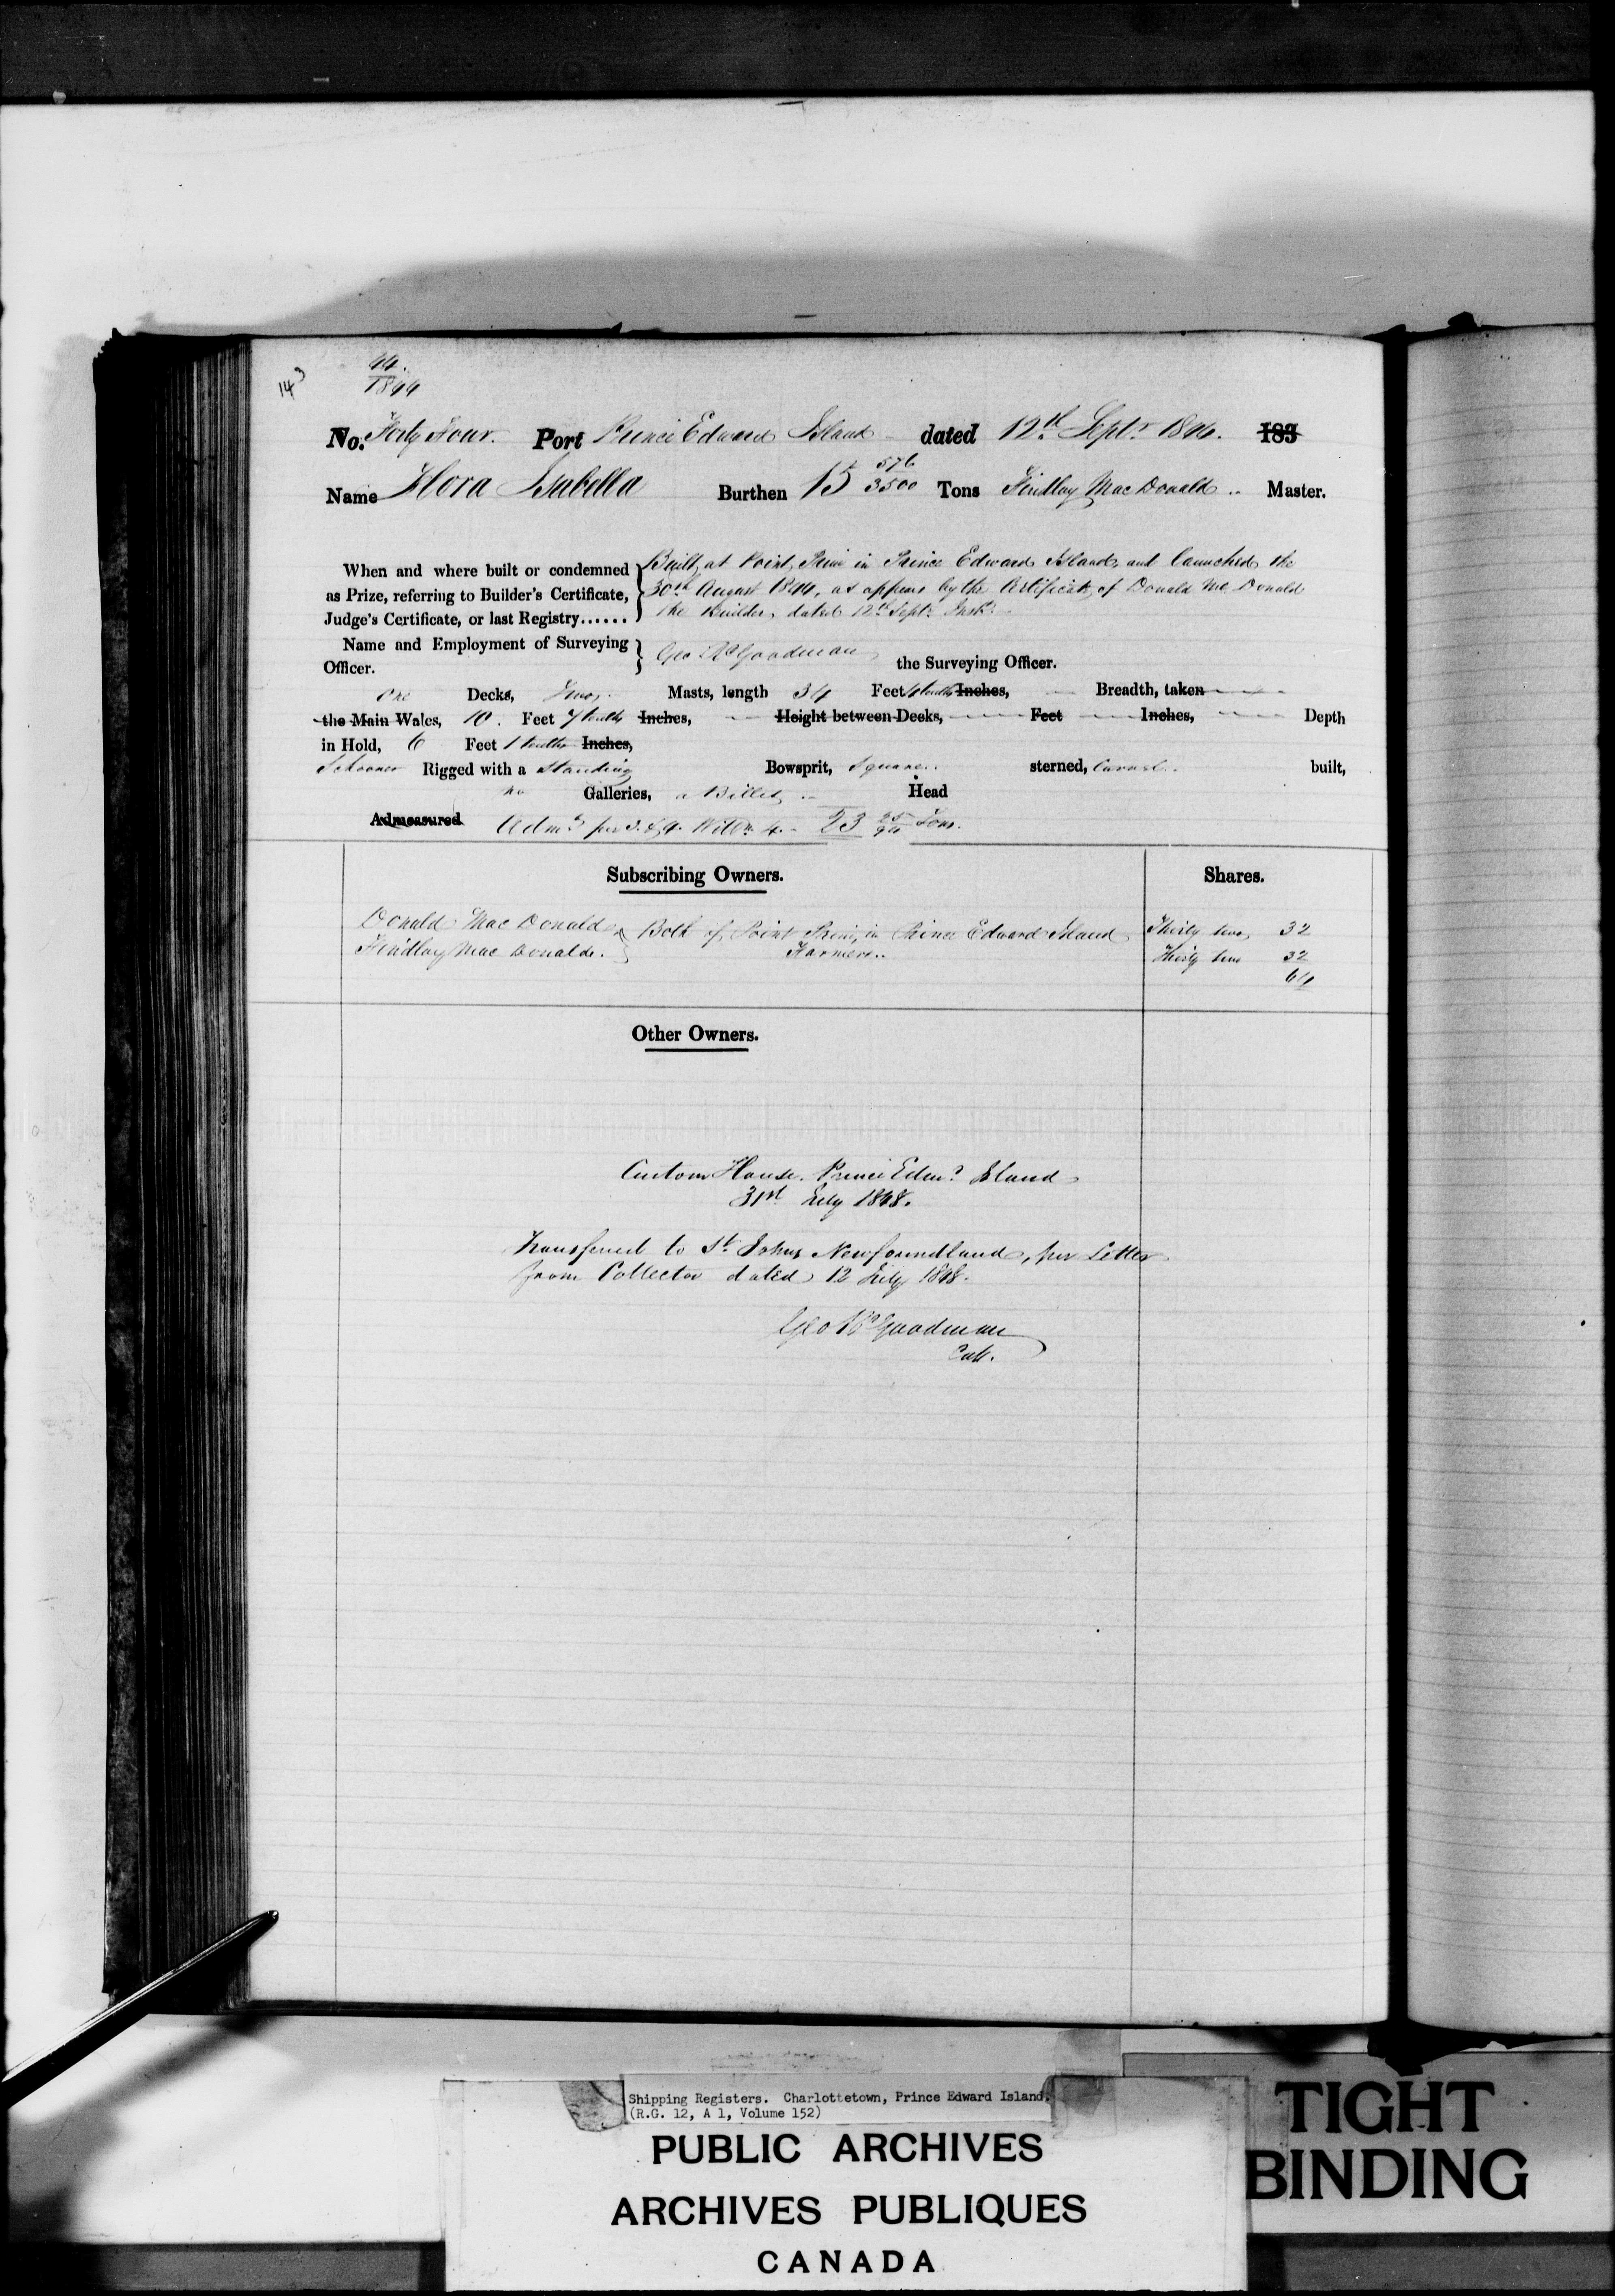 143
44.
1844
No. Forty Four. Port Prince Edward Island dated 12th Septr 1844. 183
Name Flora Isabella Burthen 15 576/3500 Tons Findlay Mac Donald .. Master.
When and where built or condemned as Prize, referring to Builder's Certificate, Judge's Certificate, or last Registry......
Built at Point Prim in Prince Edward Island, and launched the
30th August 1844, as appears by the Certificate of Donald Mc Donald
the Builder, dated 12th Septr Inst.
Name and Employment of Surveying Officer.
Geo Rd Goodman the Surveying Officer.
One Decks, Two Masts, length 34 Feet 4 tenths Inches, Breadth, taken
the Main Wales, 10. Feet 7 tenths Inches, Height between Decks, Feet Inches, Depth
in Hold, 6 Feet 1 tenths Inches,
Schooner Rigged with a Standing Bowsprit, Square.. sterned, Carvel.. built,
no Galleries, a Billet Head
Admeasured Adms per 3. & 4. Willm 4. 23 25/94 Tons.
Subscribing Owners. Shares.
Donald Mac Donald Thirty two 32
Findlay Mac Donald. Both of Point Prim, in Prince Edward Island Thirty two 32
Farmers.. 64
Other Owners.
Custom House. Prince Edwd Island
31st July 1848.
Transferred to St. Johns Newfoundland, per Letter
from Collector dated 12 July 1848.
Geo Rd Goodman
Coll.
Shipping Registers. Charlottetown, Prince Edward Island.
(R.G. 12, A 1, Volume 152)
PUBLIC ARCHIVES
ARCHIVES PUBLIQUES
CANADA
TIGHT
BINDING